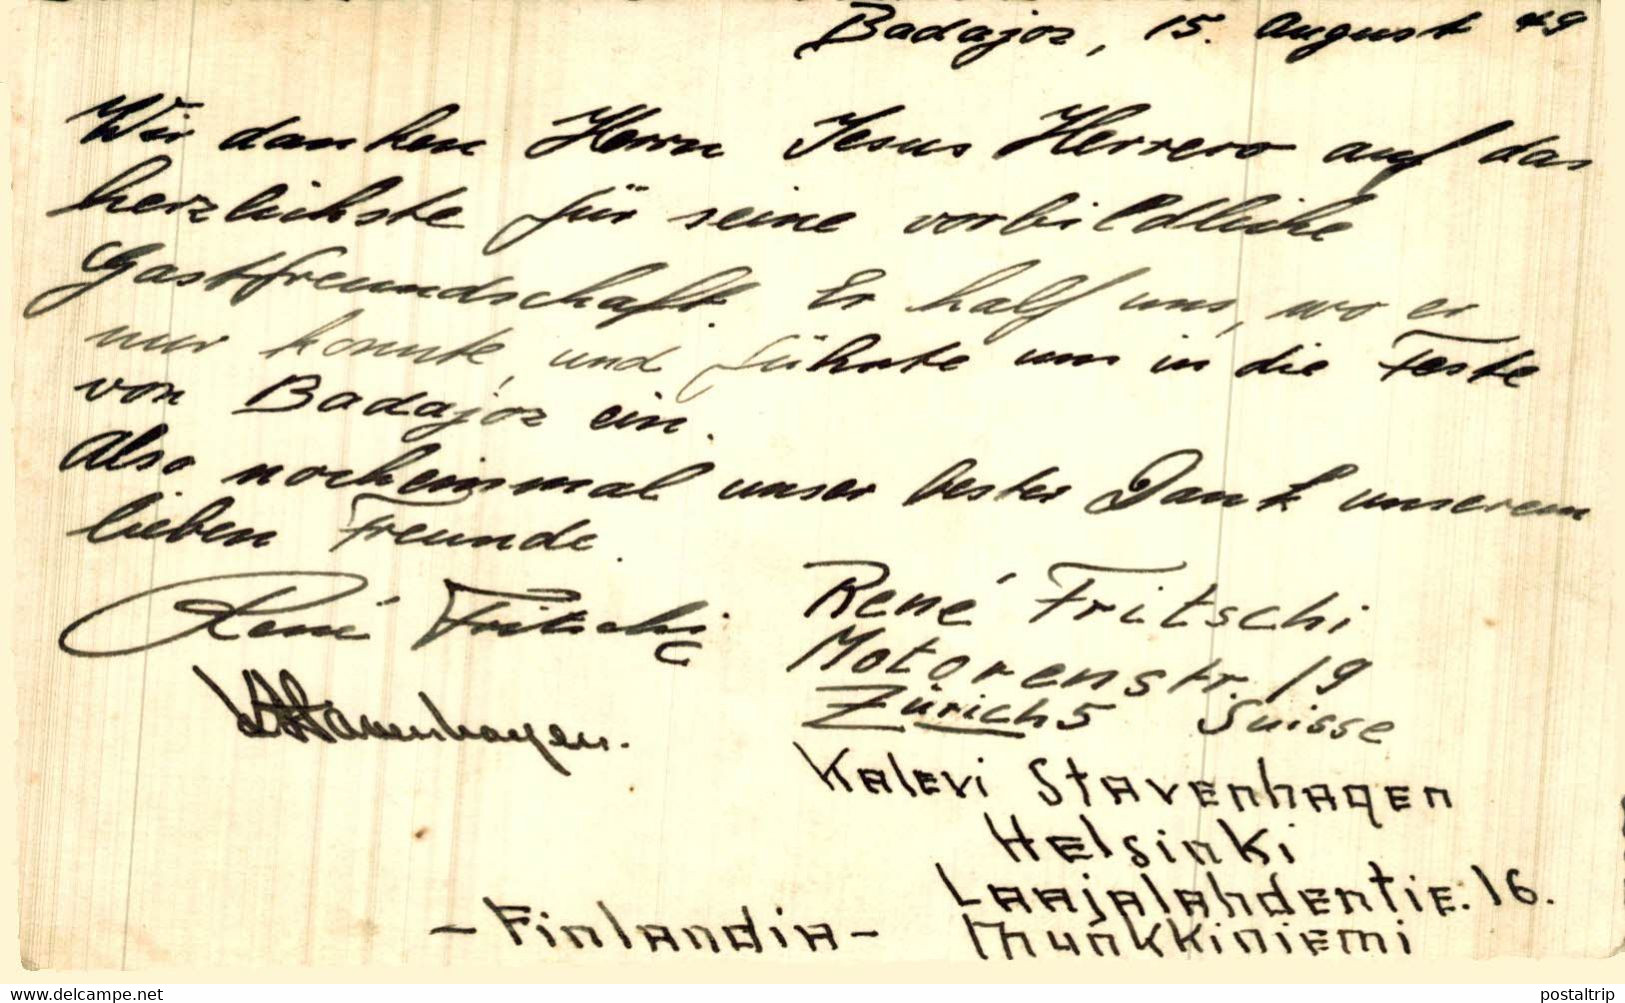 Badajoz, 15. August 49
Wir danken Herrn Jesus Herrero auf das
herzlichste für seine vorbildliche
Gastfreundschaft. Er half uns, wo er
nur konnte, und führte uns in die Feste
von Badajoz ein.
Also nocheinmal unser bester Dank unserem
lieben Freunde.
René Fritschi
René Fritschi
Motorenstr. 19
Zürich 5 Suisse
Stavenhagen.
Kalevi Stavenhagen
Helsinki
Laajalahdentie. 16.
- Finlandia - Munkkiniemi
www.delcampe.net
postaltrip